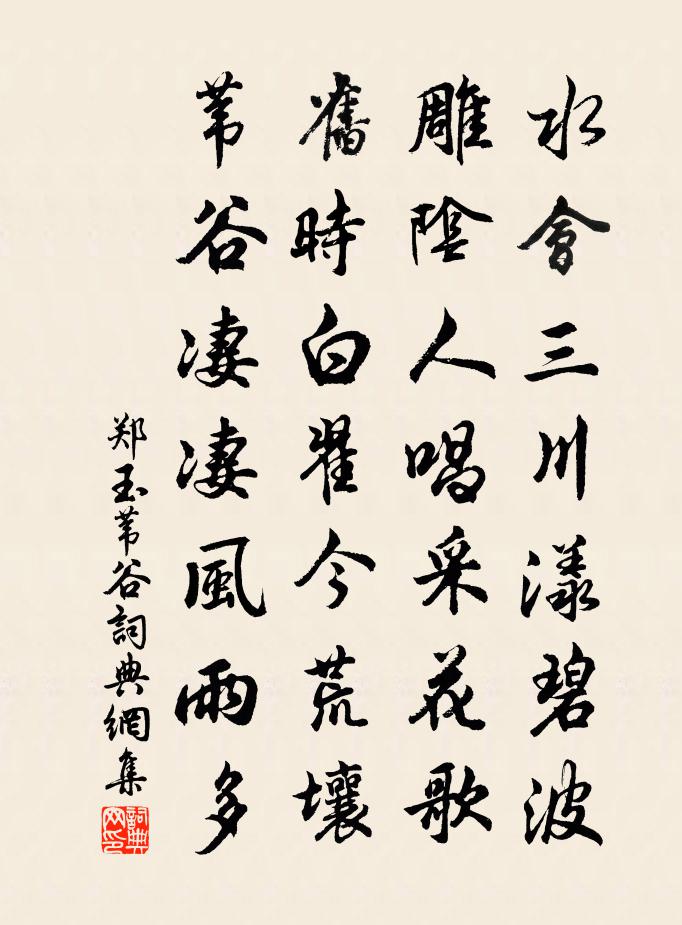 水會三川漾碧波
雕陰人唱采花歌
舊時白翟今荒壤
苇谷凄凄風雨多
郑玉苇谷詞典網集
詞典網印